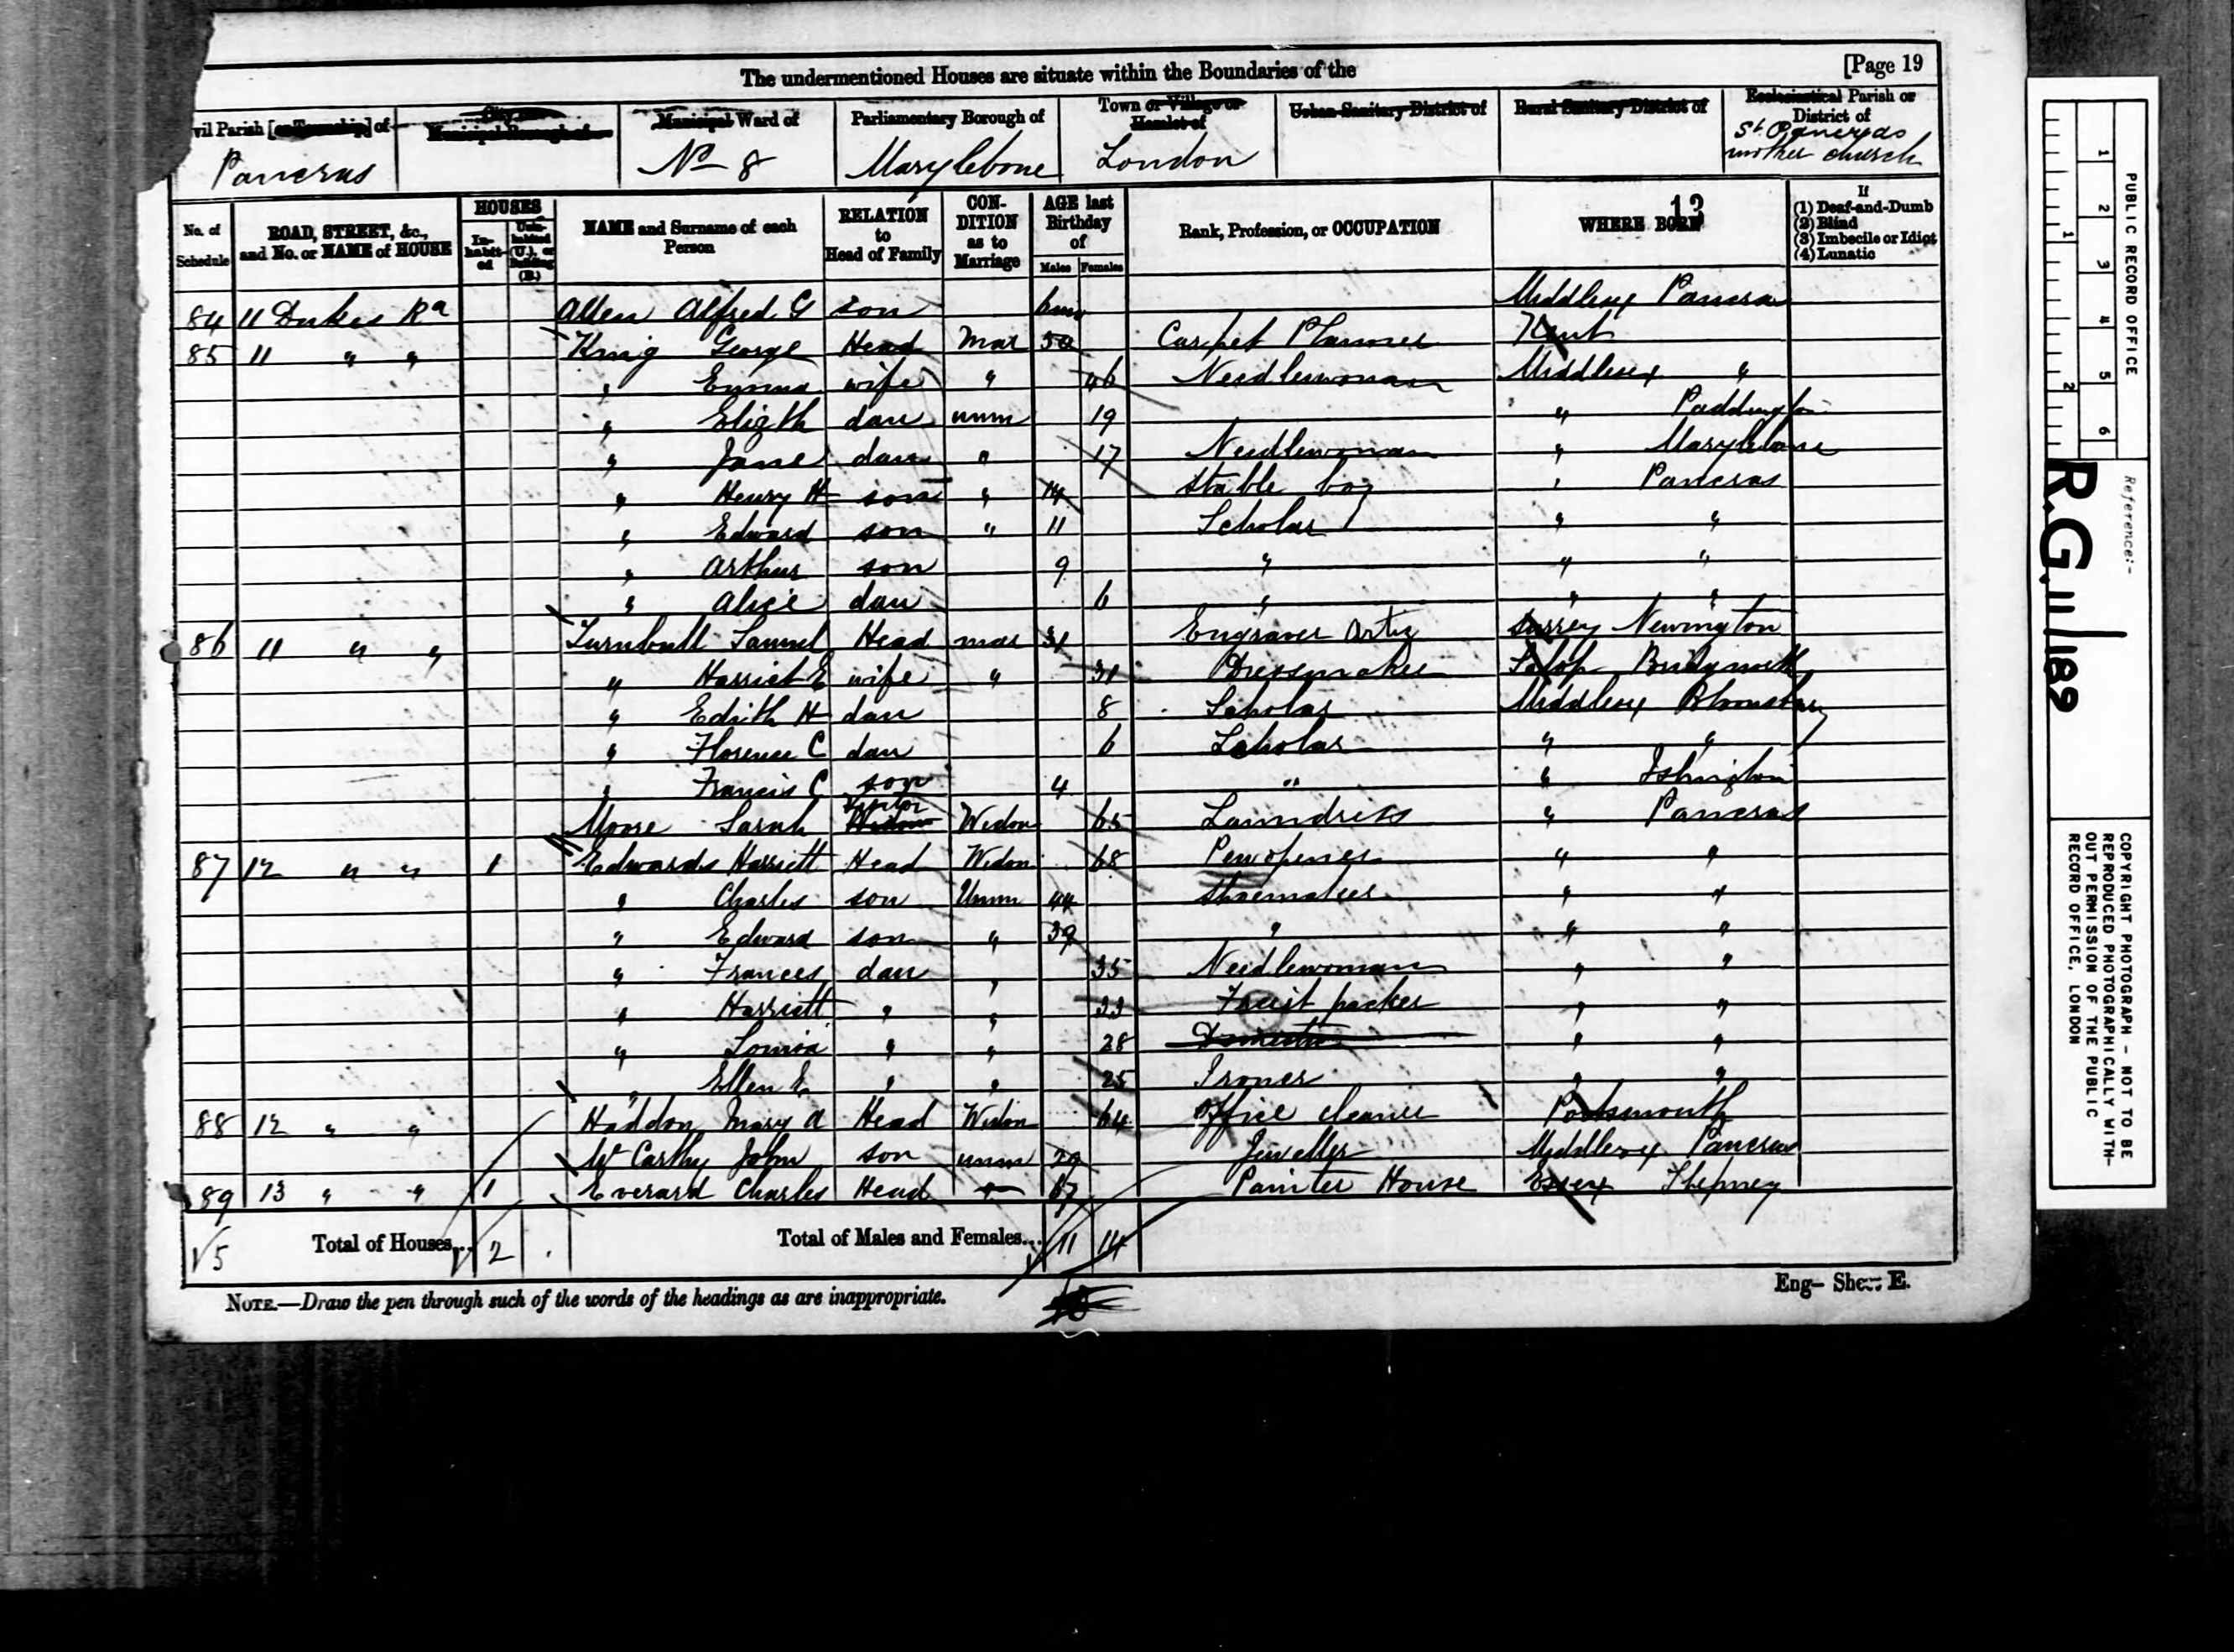 The undermentioned Houses are situate within the Boundaries of the [Page 19
vil Parish [or Township] of
Pancras
City or Municipal Borough of
Municipal Ward of
No 8
Parliamentary Borough of
Marylebone
Town or Village or Hamlet of
London
Urban Sanitary District of
Rural Sanitary District of
Ecclesiastical Parish or District of
St Pancras
mother church
No. of Schedule
ROAD, STREET, &c., and No. or NAME of HOUSE
HOUSES
In-habit-ed
Unin-habited (U.), or Building (B.)
NAME and Surname of each Person
RELATION to Head of Family
CON-DITION as to Marriage
AGE last Birthday of
Males Females
Rank, Profession, or OCCUPATION
WHERE BORN
13
If
(1) Deaf-and-Dumb
(2) Blind
(3) Imbecile or Idiot
(4) Lunatic
84 11 Dukes Rd Allen Alfred G son 6mo Middlesex Pancras
85 11 " " King George Head Mar 50 Carpet Planner Kent
" Emma wife " 46 Needlewoman Middlesex "
" Elizth dau unm 19 " Paddington
" Jane dau " 17 Needlewoman " Marylebone
" Henry H son " 14 Stable boy " Pancras
" Edward son " 11 Scholar " "
" Arthur son 9 " " "
" Alice dau 6 " " "
86 11 " " Turnbull Samuel Head mar 31 Engraver Artis Surrey Newington
" Harriet E wife " 31 Dressmaker Salop Bridgnorth
" Edith H dau 8 Scholar Middlesex Bloomsbury
" Florence C dau 6 Scholar " "
" Francis C son 4 " " Islington
Moore Sarah Visitor Widow 65 Laundress " Pancras
87 12 " " 1 Edwards Harriett Head Widow 68 Pewopener " "
" Charles son Unm 44 Shoemaker " "
" Edward son " 39 " " "
" Frances dau " 35 Needlewoman " "
" Harriett " " 33 Fruit packer " "
" Louisa " " 28 " "
" Ellen E " " 25 Ironer " "
88 12 " " Haddon Mary A Head Widow 64 Office cleaner Portsmouth
McCarthy John son unm 29 Jeweller Middlesex Pancras
89 13 " " 1 Everard Charles Head 67 Painter House Essex Stepney
5 Total of Houses... 2 Total of Males and Females... 11 14
NOTE.—Draw the pen through such of the words of the headings as are inappropriate.
Eng– Sheet E.
PUBLIC RECORD OFFICE
1 2 3 4 5 6
1 2
Reference:-
R.G. 11/189
COPYRIGHT PHOTOGRAPH - NOT TO BE
REPRODUCED PHOTOGRAPHICALLY WITH-
OUT PERMISSION OF THE PUBLIC
RECORD OFFICE, LONDON